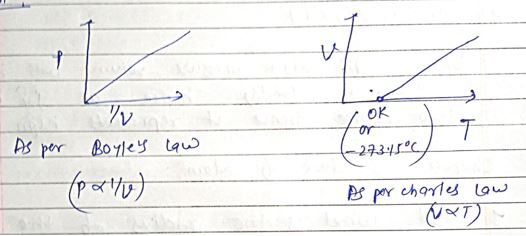 P
1/V
As per Boyle's law
(P ∝ 1/V)
V
OK
or
-273.15°C
T
As per charles law
(V∝T)